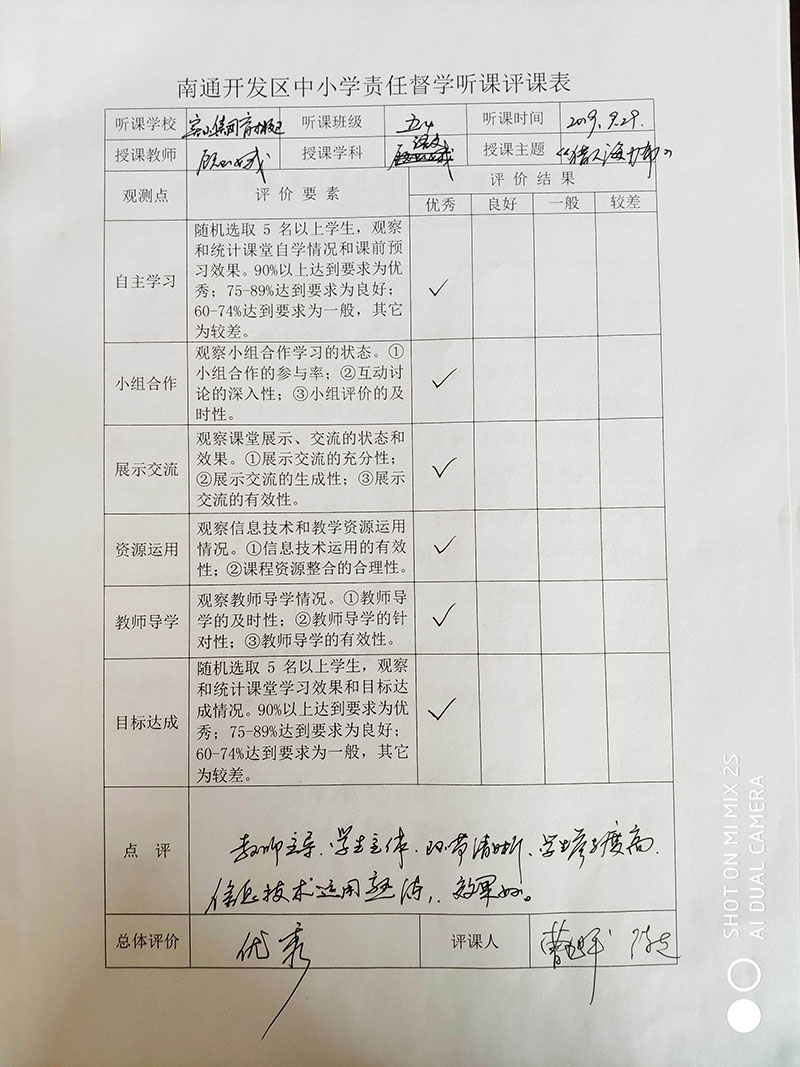 南通开发区中小学责任督学听课评课表
听课学校 听课班级 五4 听课时间 2019.9.29.
授课教师 授课学科 语文 授课主题 《猎人海力布》
观测点 评价要素 评价结果
优秀 良好 一般 较差
自主学习
随机选取 5 名以上学生，观察
和统计课堂自学情况和课前预
习效果。90%以上达到要求为优
秀；75-89%达到要求为良好；
60-74%达到要求为一般，其它
为较差。
✓
小组合作
观察小组合作学习的状态。①
小组合作的参与率；②互动讨
论的深入性；③小组评价的及
时性。
✓
展示交流
观察课堂展示、交流的状态和
效果。①展示交流的充分性；
②展示交流的生成性；③展示
交流的有效性。
✓
资源运用
观察信息技术和教学资源运用
情况。①信息技术运用的有效
性；②课程资源整合的合理性。
✓
教师导学
观察教师导学情况。①教师导
学的及时性；②教师导学的针
对性；③教师导学的有效性。
✓
目标达成
随机选取 5 名以上学生，观察
和统计课堂学习效果和目标达
成情况。90%以上达到要求为优
秀；75-89%达到要求为良好；
60-74%达到要求为一般，其它
为较差。
✓
点 评
教师主导、学生主体、环节清晰、学生参与度高.
信息技术运用熟练，效果好。
总体评价 优秀 评课人
SHOT ON MI MIX 2S
AI DUAL CAMERA